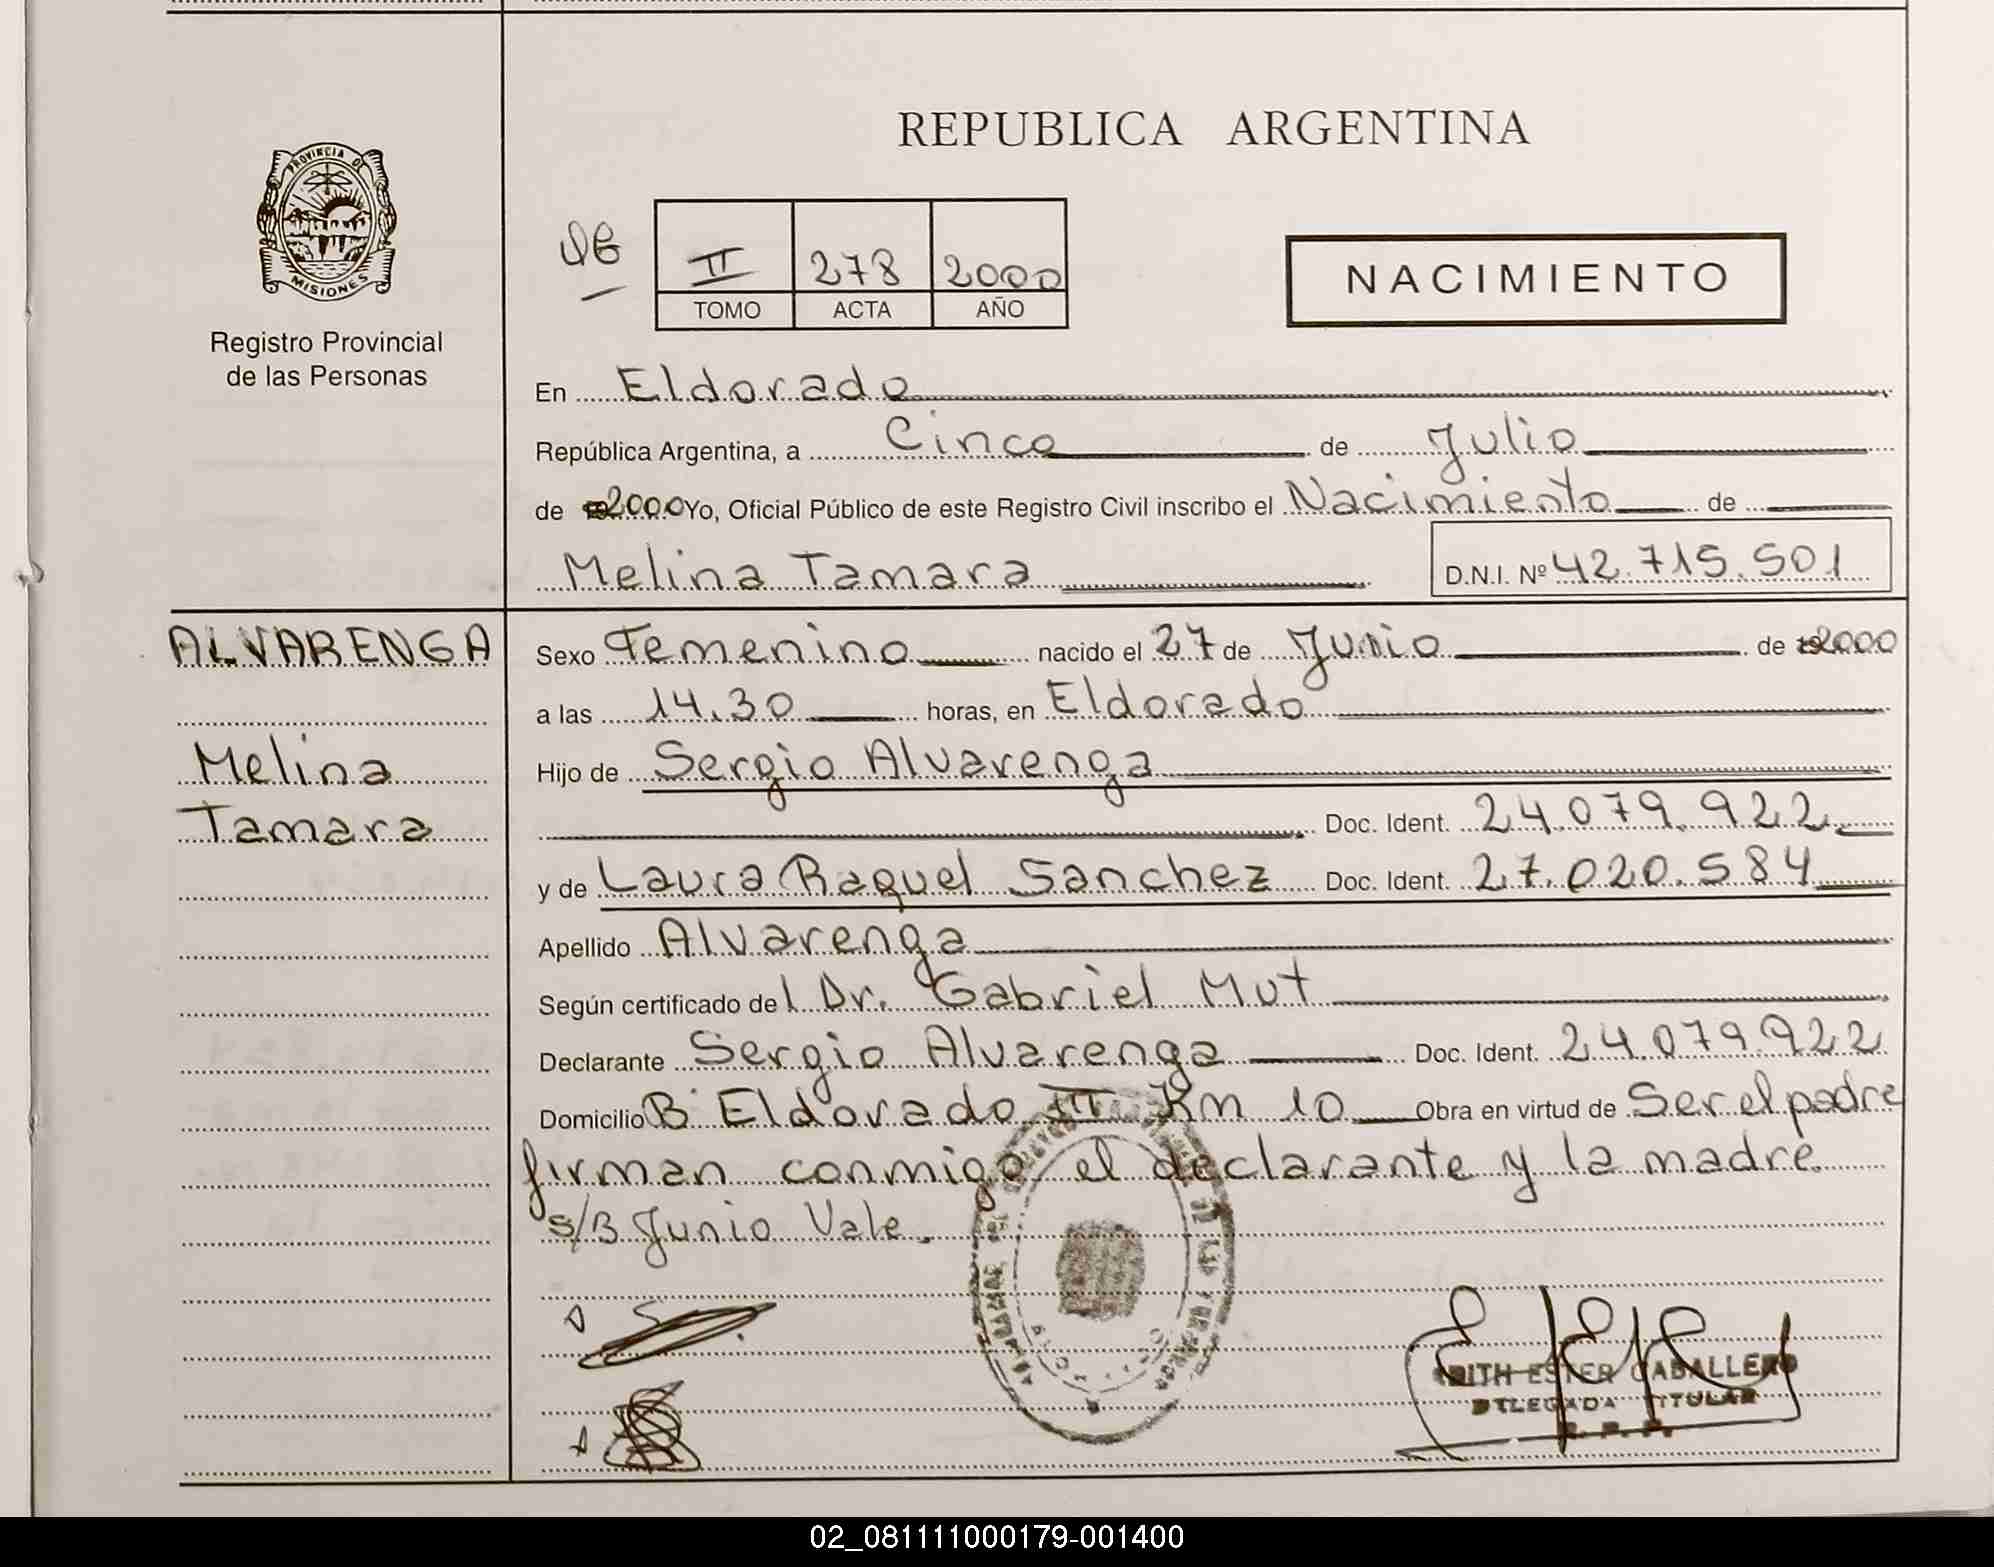 REPUBLICA ARGENTINA
PROVINCIA DE
MISIONES
Registro Provincial
de las Personas
II 278 2000
TOMO ACTA AÑO
NACIMIENTO
En Eldorado
República Argentina, a Cinco de Julio
de 2000 Yo, Oficial Público de este Registro Civil inscribo el Nacimiento de
Melina Tamara D.N.I. Nº 42.715.501
ALVARENGA
Melina
Tamara
Sexo Femenino nacido el 27 de Junio de 2000
a las 14.30 horas, en Eldorado
Hijo de Sergio Alvarenga
Doc. Ident. 24.079.922
y de Laura Raquel Sanchez Doc. Ident. 27.020.584
Apellido Alvarenga
Según certificado del Dr. Gabriel Mut
Declarante Sergio Alvarenga Doc. Ident. 24.079.922
Domicilio B° Eldorado III Km 10 Obra en virtud de Ser el padre
firman conmigo el declarante y la madre.
s/B Junio Vale.
EDITH ESTER CABALLERO
DELEGADA TITULAR
R. P. P.
02_081111000179-001400